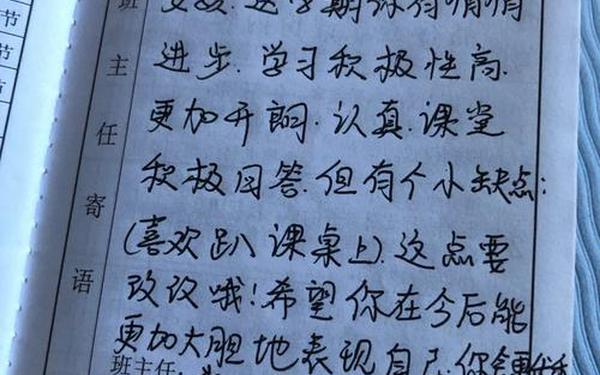 节
节
班主任寄语
这学期你有悄悄
进步.学习积极性高.
更加开朗.认真.课堂
积极回答.但有个小缺点:
(喜欢趴课桌上).这点要
改议哦!希望你在今后能
更加大胆地表现自己.你会更
班主任: